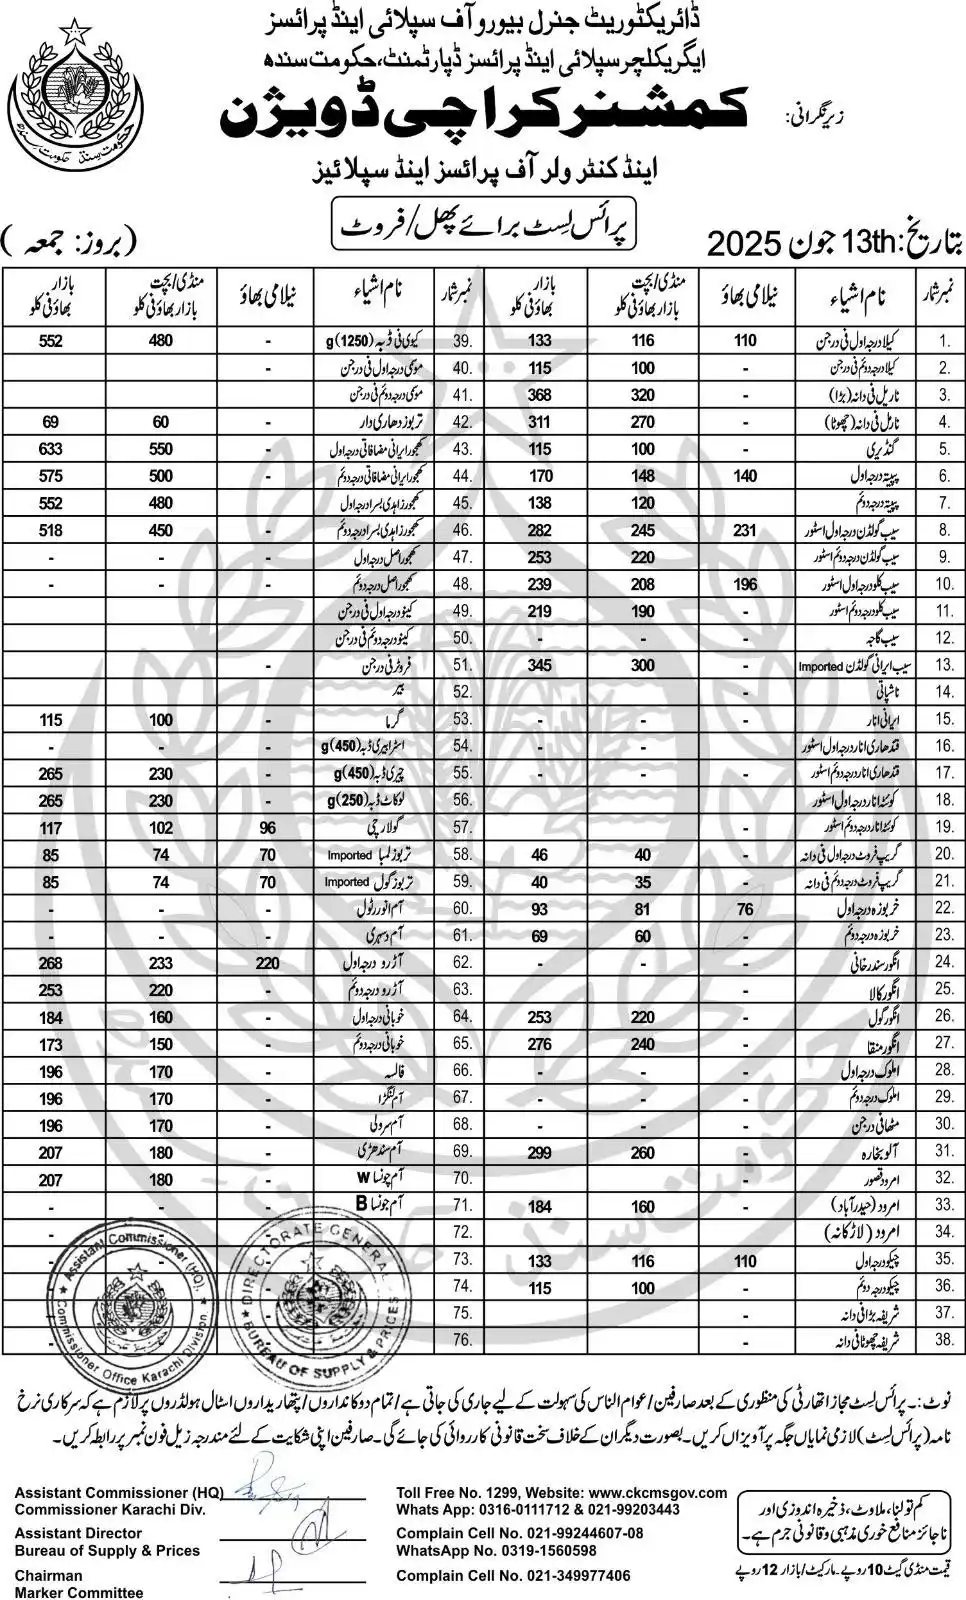 ڈائریکٹوریٹ جنرل بیورو آف سپلائی اینڈ پرائسز
ایگریکلچر سپلائی اینڈ پرائسز ڈپارٹمنٹ، حکومت سندھ
زیر نگرانی: کمشنر کراچی ڈویژن
اینڈ کنٹرولر آف پرائسز اینڈ سپلائیز
پرائس لسٹ برائے پھل/فروٹ
بتاریخ: 13th جون 2025 (بروز: جمعہ)
نمبر شمار نام اشیاء نیلامی بھاؤ منڈی/بچت بازار بھاؤ فی کلو بازار بھاؤ فی کلو نمبر شمار نام اشیاء نیلامی بھاؤ منڈی/بچت بازار بھاؤ فی کلو بازار بھاؤ فی کلو
1. کیلا درجہ اول فی درجن 110 116 133 39. کیوی فی ڈبہ (1250)g - 480 552
2. کیلا درجہ دوئم فی درجن - 100 115 40. موسمی درجہ اول فی درجن -
3. ناریل فی دانہ (بڑا) - 320 368 41. موسمی درجہ دوئم فی درجن
4. ناریل فی دانہ (چھوٹا) - 270 311 42. تربوز دھاری دار - 60 69
5. گنڈیری - 100 115 43. کھجور ایرانی مضافاتی درجہ اول - 550 633
6. پپیتہ درجہ اول 140 148 170 44. کھجور ایرانی مضافاتی درجہ دوئم - 500 575
7. پپیتہ درجہ دوئم - 120 138 45. کھجور زاہدی بسرا درجہ اول - 480 552
8. سیب گولڈن درجہ اول اسٹور 231 245 282 46. کھجور زاہدی بسرا درجہ دوئم - 450 518
9. سیب گولڈن درجہ دوئم اسٹور - 220 253 47. کھجور اصل درجہ اول - - -
10. سیب کلو درجہ اول اسٹور 196 208 239 48. کھجور اصل درجہ دوئم - - -
11. سیب کلو درجہ دوئم اسٹور - 190 219 49. کینو درجہ اول فی درجن -
12. سیب گاجہ - - - 50. کینو درجہ دوئم فی درجن -
13. سیب ایرانی گولڈن Imported - 300 345 51. فروٹر فی درجن -
14. ناشپاتی - 52. بیر
15. ایرانی انار - - - 53. گرما - 100 115
16. قندھاری انار درجہ اول اسٹور - - - 54. اسٹرابیری ڈبہ (450)g - - -
17. قندھاری انار درجہ دوئم اسٹور - - - 55. چیری ڈبہ (450)g - 230 265
18. کوئٹہ انار درجہ اول اسٹور - 56. لوکاٹ ڈبہ (250)g - 230 265
19. کوئٹہ انار درجہ دوئم اسٹور - 57. گولارچی 96 102 117
20. گریپ فروٹ درجہ اول فی دانہ - 40 46 58. تربوز لمبا Imported 70 74 85
21. گریپ فروٹ درجہ دوئم فی دانہ - 35 40 59. تربوز گول Imported 70 74 85
22. خربوزہ درجہ اول 76 81 93 60. آم انور رٹول - - -
23. خربوزہ درجہ دوئم - 60 69 61. آم دسہری - - -
24. انگور سندرخانی - - - 62. آڑو درجہ اول 220 233 268
25. انگور کالا - 63. آڑو درجہ دوئم - 220 253
26. انگور گول - 220 253 64. خوبانی درجہ اول - 160 184
27. انگور منقا - 240 276 65. خوبانی درجہ دوئم - 150 173
28. املوک درجہ اول - - - 66. فالسہ - 170 196
29. املوک درجہ دوئم - - - 67. آم لنگڑا - 170 196
30. مٹھا فی درجن - - - 68. آم سرولی - 170 196
31. آلو بخارہ - 260 299 69. آم سندھڑی - 180 207
32. امرود قصور - 70. آم چونسا W - 180 207
33. امرود (حیدرآباد) - 160 184 71. آم چونسا B - - -
34. امرود (لاڑکانہ) 72.
35. چیکو درجہ اول 110 116 133 73.
36. چیکو درجہ دوئم - 100 115 74.
37. شریفہ بڑا فی دانہ - 75.
38. شریفہ چھوٹا فی دانہ - 76.
Assistant Commissioner (HQ)
Commissioner Office Karachi Division.
DIRECTORATE GENERAL
BUREAU OF SUPPLY & PRICES
نوٹ:۔ پرائس لسٹ مجاز اتھارٹی کی منظوری کے بعد صارفین/عوام الناس کی سہولت کے لیے جاری کی جاتی ہے/تمام دوکانداروں/پتھاریداروں اسٹال ہولڈروں پر لازم ہے کہ سرکاری نرخ
نامہ (پرائس لسٹ) لازمی نمایاں جگہ پر آویزاں کریں۔ بصورت دیگر ان کے خلاف سخت قانونی کارروائی کی جائے گی۔ صارفین اپنی شکایت کے لئے مندرجہ زیل فون نمبر پر رابطہ کریں۔
Assistant Commissioner (HQ)
Commissioner Karachi Div.
Assistant Director
Bureau of Supply & Prices
Chairman
Marker Committee
Toll Free No. 1299, Website: www.ckcmsgov.com
Whats App: 0316-0111712 & 021-99203443
Complain Cell No. 021-99244607-08
WhatsApp No. 0319-1560598
Complain Cell No. 021-349977406
کم تولنا، ملاوٹ، ذخیرہ اندوزی اور
ناجائز منافع خوری مذہبی و قانونی جرم ہے۔
قیمت منڈی گیٹ 10 روپے۔ مارکیٹ/بازار 12 روپے